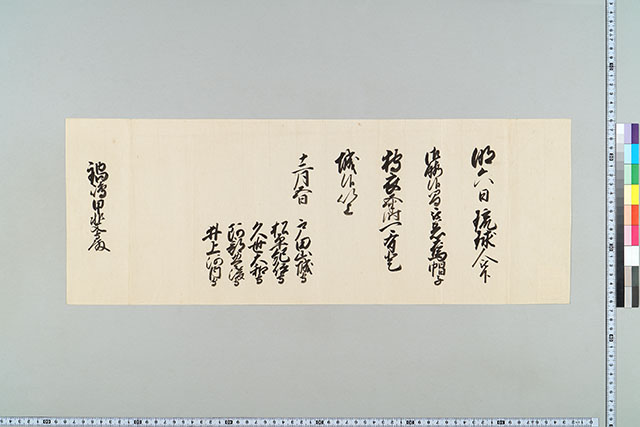 明六日琉球人
候間 烏帽子
狩衣 可有登
城候以上
十二月五日
戸田山城守
松平紀伊守
久世大和守
阿部豊後守
井上河内守
鍋嶋甲斐守殿